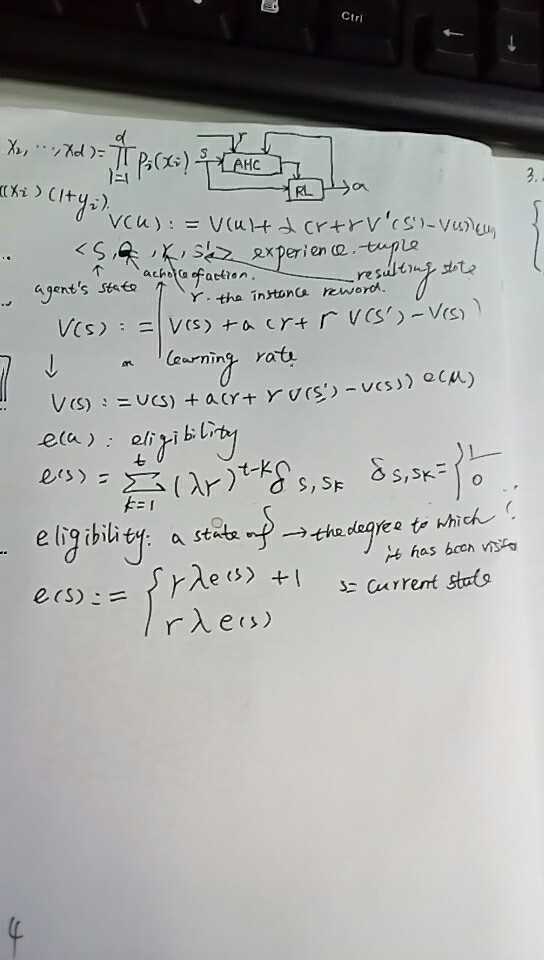 Ctrl
← ↓
x₂, ..., xd) = ∏ᵈᵢ₌₁ pᵢ(xᵢ) s r AHC RL a
3.
(xᵢ) (1+yᵢ).
V(u) := V(u) + α (r + r V'(s') - V(s))
<s, a, r, s'> experience tuple
agent's state a choice of action. resulting state
r. the instance reword.
V(s) := V(s) + a (r + r V(s') - V(s))
↓ learning rate
V(s) := V(s) + a(r + r V(s') - V(s)) e(u)
e(u): eligibility
e(s) = ∑ᵗₖ₌₁ (λr)ᵗ⁻ᵏ δ s,sₖ δ s,sₖ = { 1 0
eligibility: a state of → the degree to which
it has been visite
e(s) := { rλe(s) + 1 s = current state
rλe(s)
4